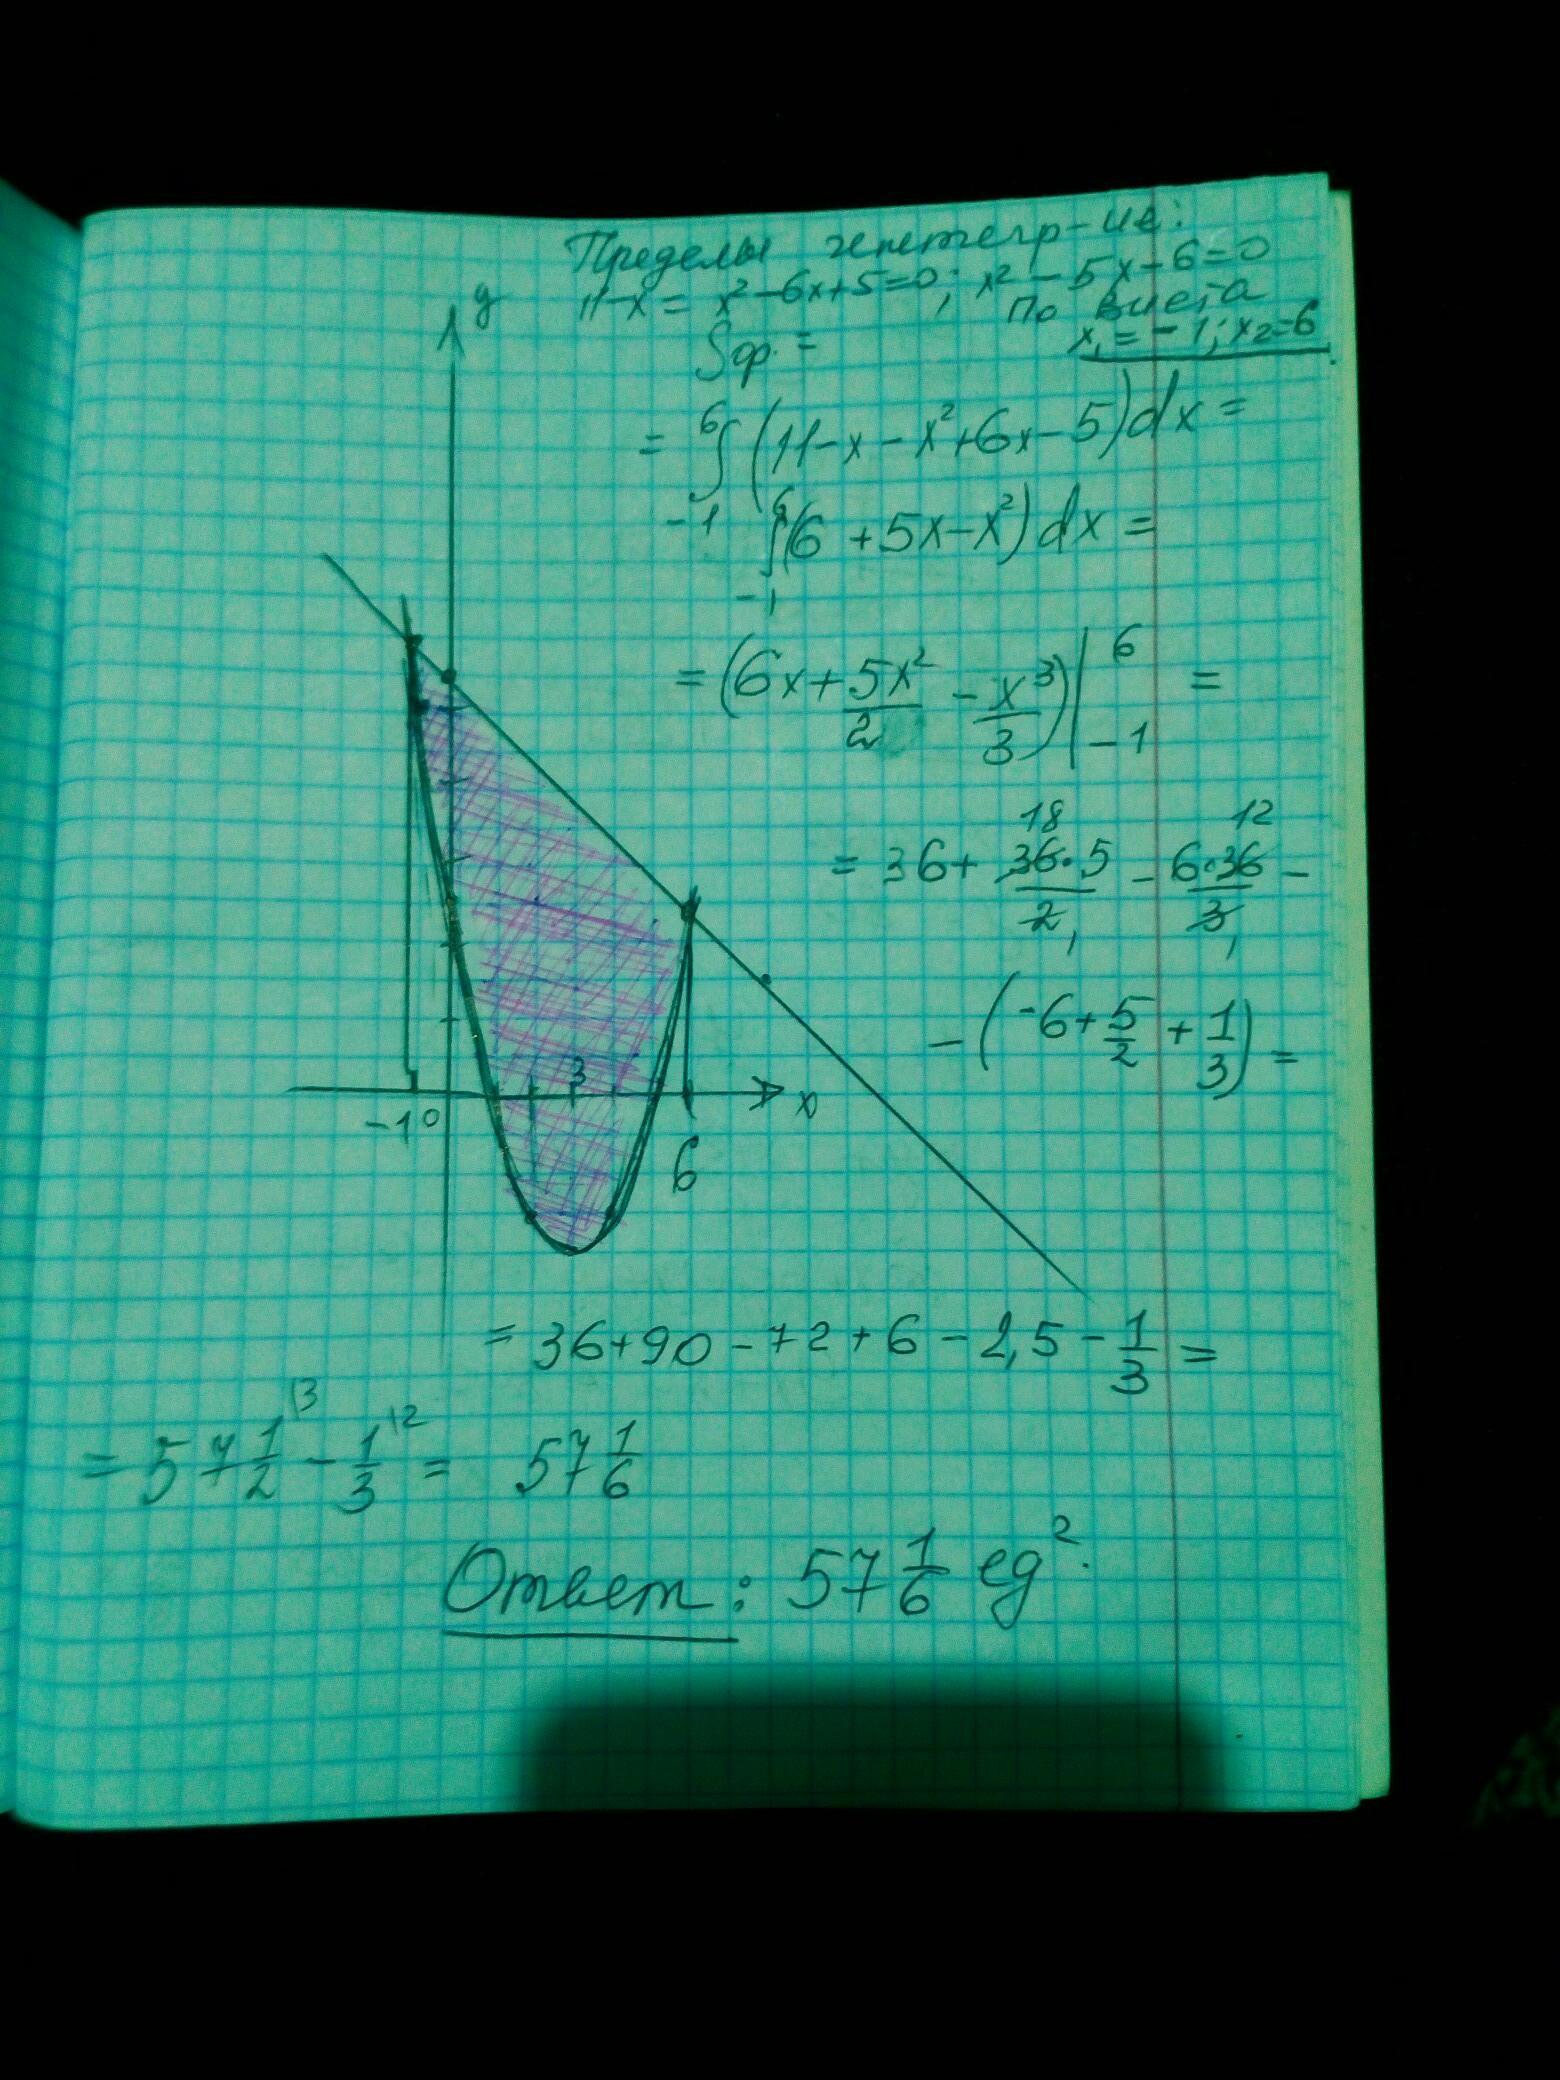 Пределы интегр-ия:
11-x = x² - 6x + 5 = 0; x² - 5x - 6 = 0
по Виета
Sф. =
x₁ = -1; x₂ = 6
= ∫₋₁⁶ (11 - x - x² + 6x - 5) dx =
∫₋₁⁶ (6 + 5x - x²) dx =
= (6x + 5x²/2 - x³/3) |₋₁⁶ =
18 12
= 36 + 36·5/2 - 6·36/3 -
1 1
- (-6 + 5/2 + 1/3) =
y
3
x
-1 0
6
= 36 + 90 - 72 + 6 - 2,5 - 1/3 =
= 57 1/2 \3 - 1/3 \2 = 57 1/6
Ответ: 57 1/6 ед².